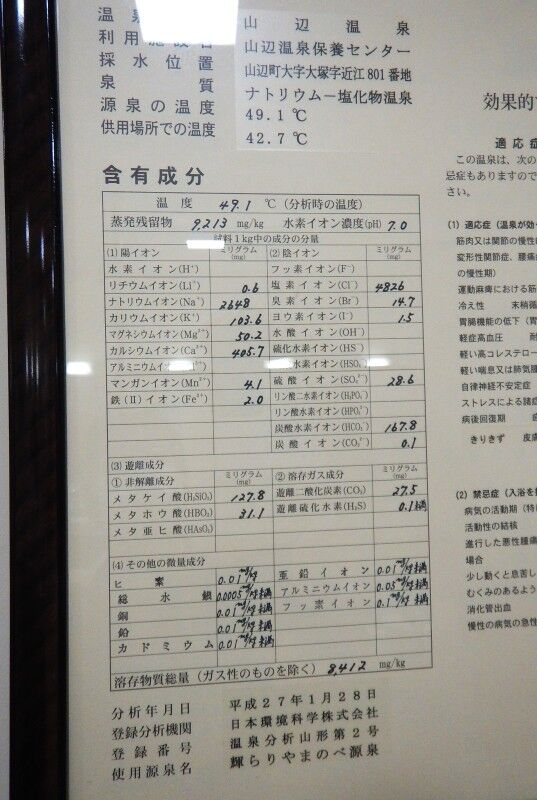 温 山辺温泉
利用施設名 山辺温泉保養センター
採水位置 山辺町大字大塚字近江801番地
泉質 ナトリウム－塩化物温泉
源泉の温度 49.1℃
供用場所での温度 42.7℃
含有成分
温度 49.1 ℃(分析時の温度)
蒸発残留物 9,213 mg/kg 水素イオン濃度(pH) 7.0
試料1kg中の成分の分量
(1)陽イオン ミリグラム(mg) (2)陰イオン ミリグラム(mg)
水素イオン(H⁺) フッ素イオン(F⁻)
リチウムイオン(Li⁺) 0.6 塩素イオン(Cl⁻) 4826
ナトリウムイオン(Na⁺) 2648 臭素イオン(Br⁻) 14.7
カリウムイオン(K⁺) 103.6 ヨウ素イオン(I⁻) 1.5
マグネシウムイオン(Mg²⁺) 50.2 水酸イオン(OH⁻)
カルシウムイオン(Ca²⁺) 405.7 硫化水素イオン(HS⁻)
アルミニウムイオン 水素イオン(HSO₄⁻)
マンガンイオン(Mn²⁺) 4.1 硫酸イオン(SO₄²⁻) 28.6
鉄(II)イオン(Fe²⁺) 2.0 リン酸二水素イオン(H₂PO₄⁻)
リン酸水素イオン(HPO₄²⁻)
炭酸水素イオン(HCO₃⁻) 167.8
炭酸イオン(CO₃²⁻) 0.1
(3)遊離成分
①非解離成分 ミリグラム(mg) ②溶存ガス成分 ミリグラム(mg)
メタケイ酸(H₂SiO₃) 127.8 遊離二酸化炭素(CO₂) 27.5
メタホウ酸(HBO₂) 31.1 遊離硫化水素(H₂S) 0.1未満
メタ亜ヒ酸(HAsO₂)
(4)その他の微量成分
ヒ素 0.01mg/kg 亜鉛イオン 0.01mg/kg未満
総水銀 0.0005mg/kg未満 アルミニウムイオン 0.05mg/kg未満
銅 0.01mg/kg未満 フッ素イオン 0.1mg/kg未満
鉛 0.01mg/kg未満
カドミウム 0.01mg/kg未満
溶存物質総量(ガス性のものを除く) 8,412 mg/kg
分析年月日 平成27年1月28日
登録分析機関 日本環境科学株式会社
登録番号 温泉分析山形第2号
使用源泉名 輝らりやまのべ源泉
効果的
適応症
この温泉は、次の
忌症もありますので
さい。
(1) 適応症(温泉が効
筋肉又は関節の慢性
変形性関節症、腰痛
の慢性期)
運動麻痺における筋
冷え性 末梢循
胃腸機能の低下(胃
軽症高血圧 耐
軽い高コレステロー
軽い喘息又は肺気腫
自律神経不安定症
ストレスによる諸症
病後回復期
きりきず 皮膚
(2) 禁忌症(入浴を
病気の活動期(特
活動性の結核
進行した悪性腫瘍
場合
少し動くと息苦し
むくみのあるよう
消化管出血
慢性の病気の急性